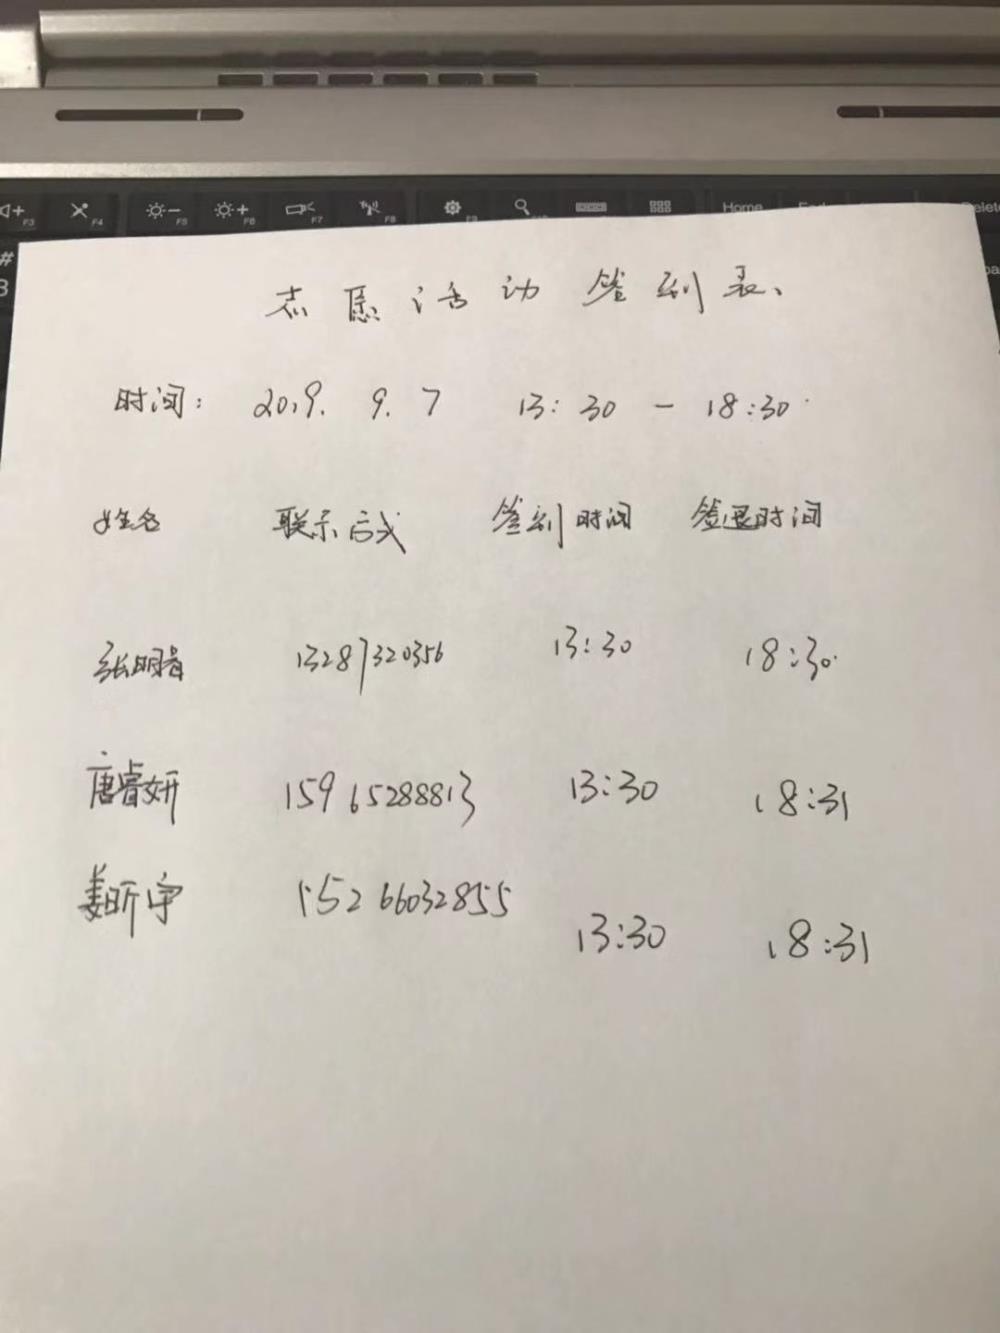 F3 F4 F5 F6 F7 F8 F9 Home
#
3
志愿活动签到表、
时间： 2019. 9. 7 13：30 - 18:30
姓名 联系方式 签到时间 签退时间
张明睿 13287320356 13:30 18:30
唐睿妍 15965288813 13:30 18:31
姜昕宇 15266032855 13:30 18:31